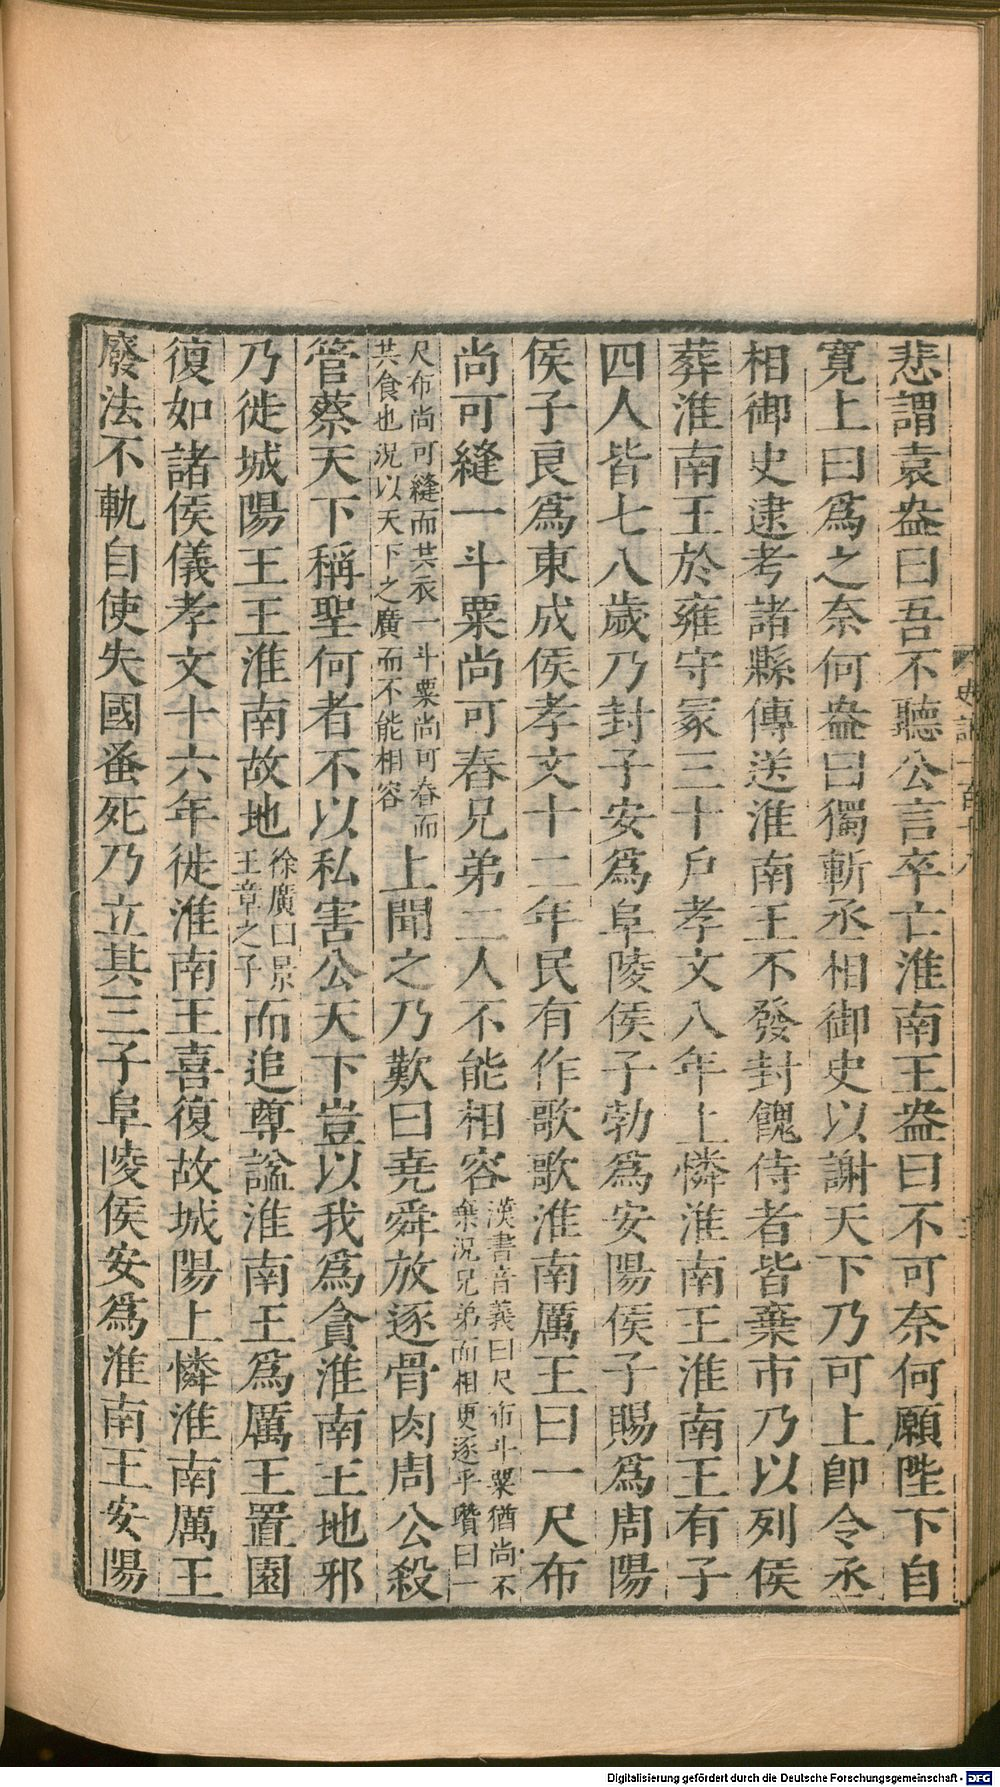 悲謂袁盎曰吾不聽公言卒亡淮南王盎曰不可奈何願陛下自
寛上曰爲之奈何盎曰獨斬丞相御史以謝天下乃可上即令丞
相御史逮考諸縣傳送淮南王不發封餽侍者皆棄市乃以列侯
葬淮南王於雍守冢三十戶孝文八年上憐淮南王淮南王有子
四人皆七八歲乃封子安爲阜陵侯子勃爲安陽侯子賜爲周陽
侯子良爲東成侯孝文十二年民有作歌歌淮南厲王曰一尺布
尚可縫一斗粟尚可舂兄弟二人不能相容漢書音義曰尺布斗粟猶尚不棄況兄弟而相更逐乎瓚曰一
尺布尚可縫而共衣一斗粟尚可舂而共食也況以天下之廣而不能相容上聞之乃歎曰堯舜放逐骨肉周公殺
管蔡天下稱聖何者不以私害公天下豈以我爲貪淮南王地邪
乃徙城陽王王淮南故地徐廣曰景王章之子而追尊謚淮南王爲厲王置園
復如諸侯儀孝文十六年徙淮南王喜復故城陽上憐淮南厲王
廢法不軌自使失國蚤死乃立其三子阜陵侯安爲淮南王安陽
史記一百十八
Digitalisierung gefördert durch die Deutsche Forschungsgemeinschaft - DFG